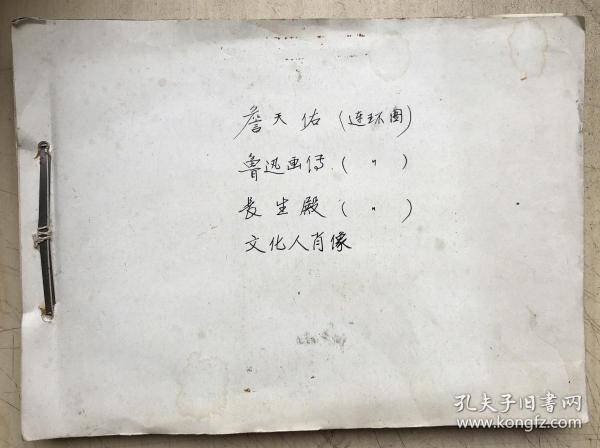 詹天佑（连环图）
鲁迅画传（〃）
長生殿（〃）
文化人肖像
孔夫子旧书网
www.kongfz.com